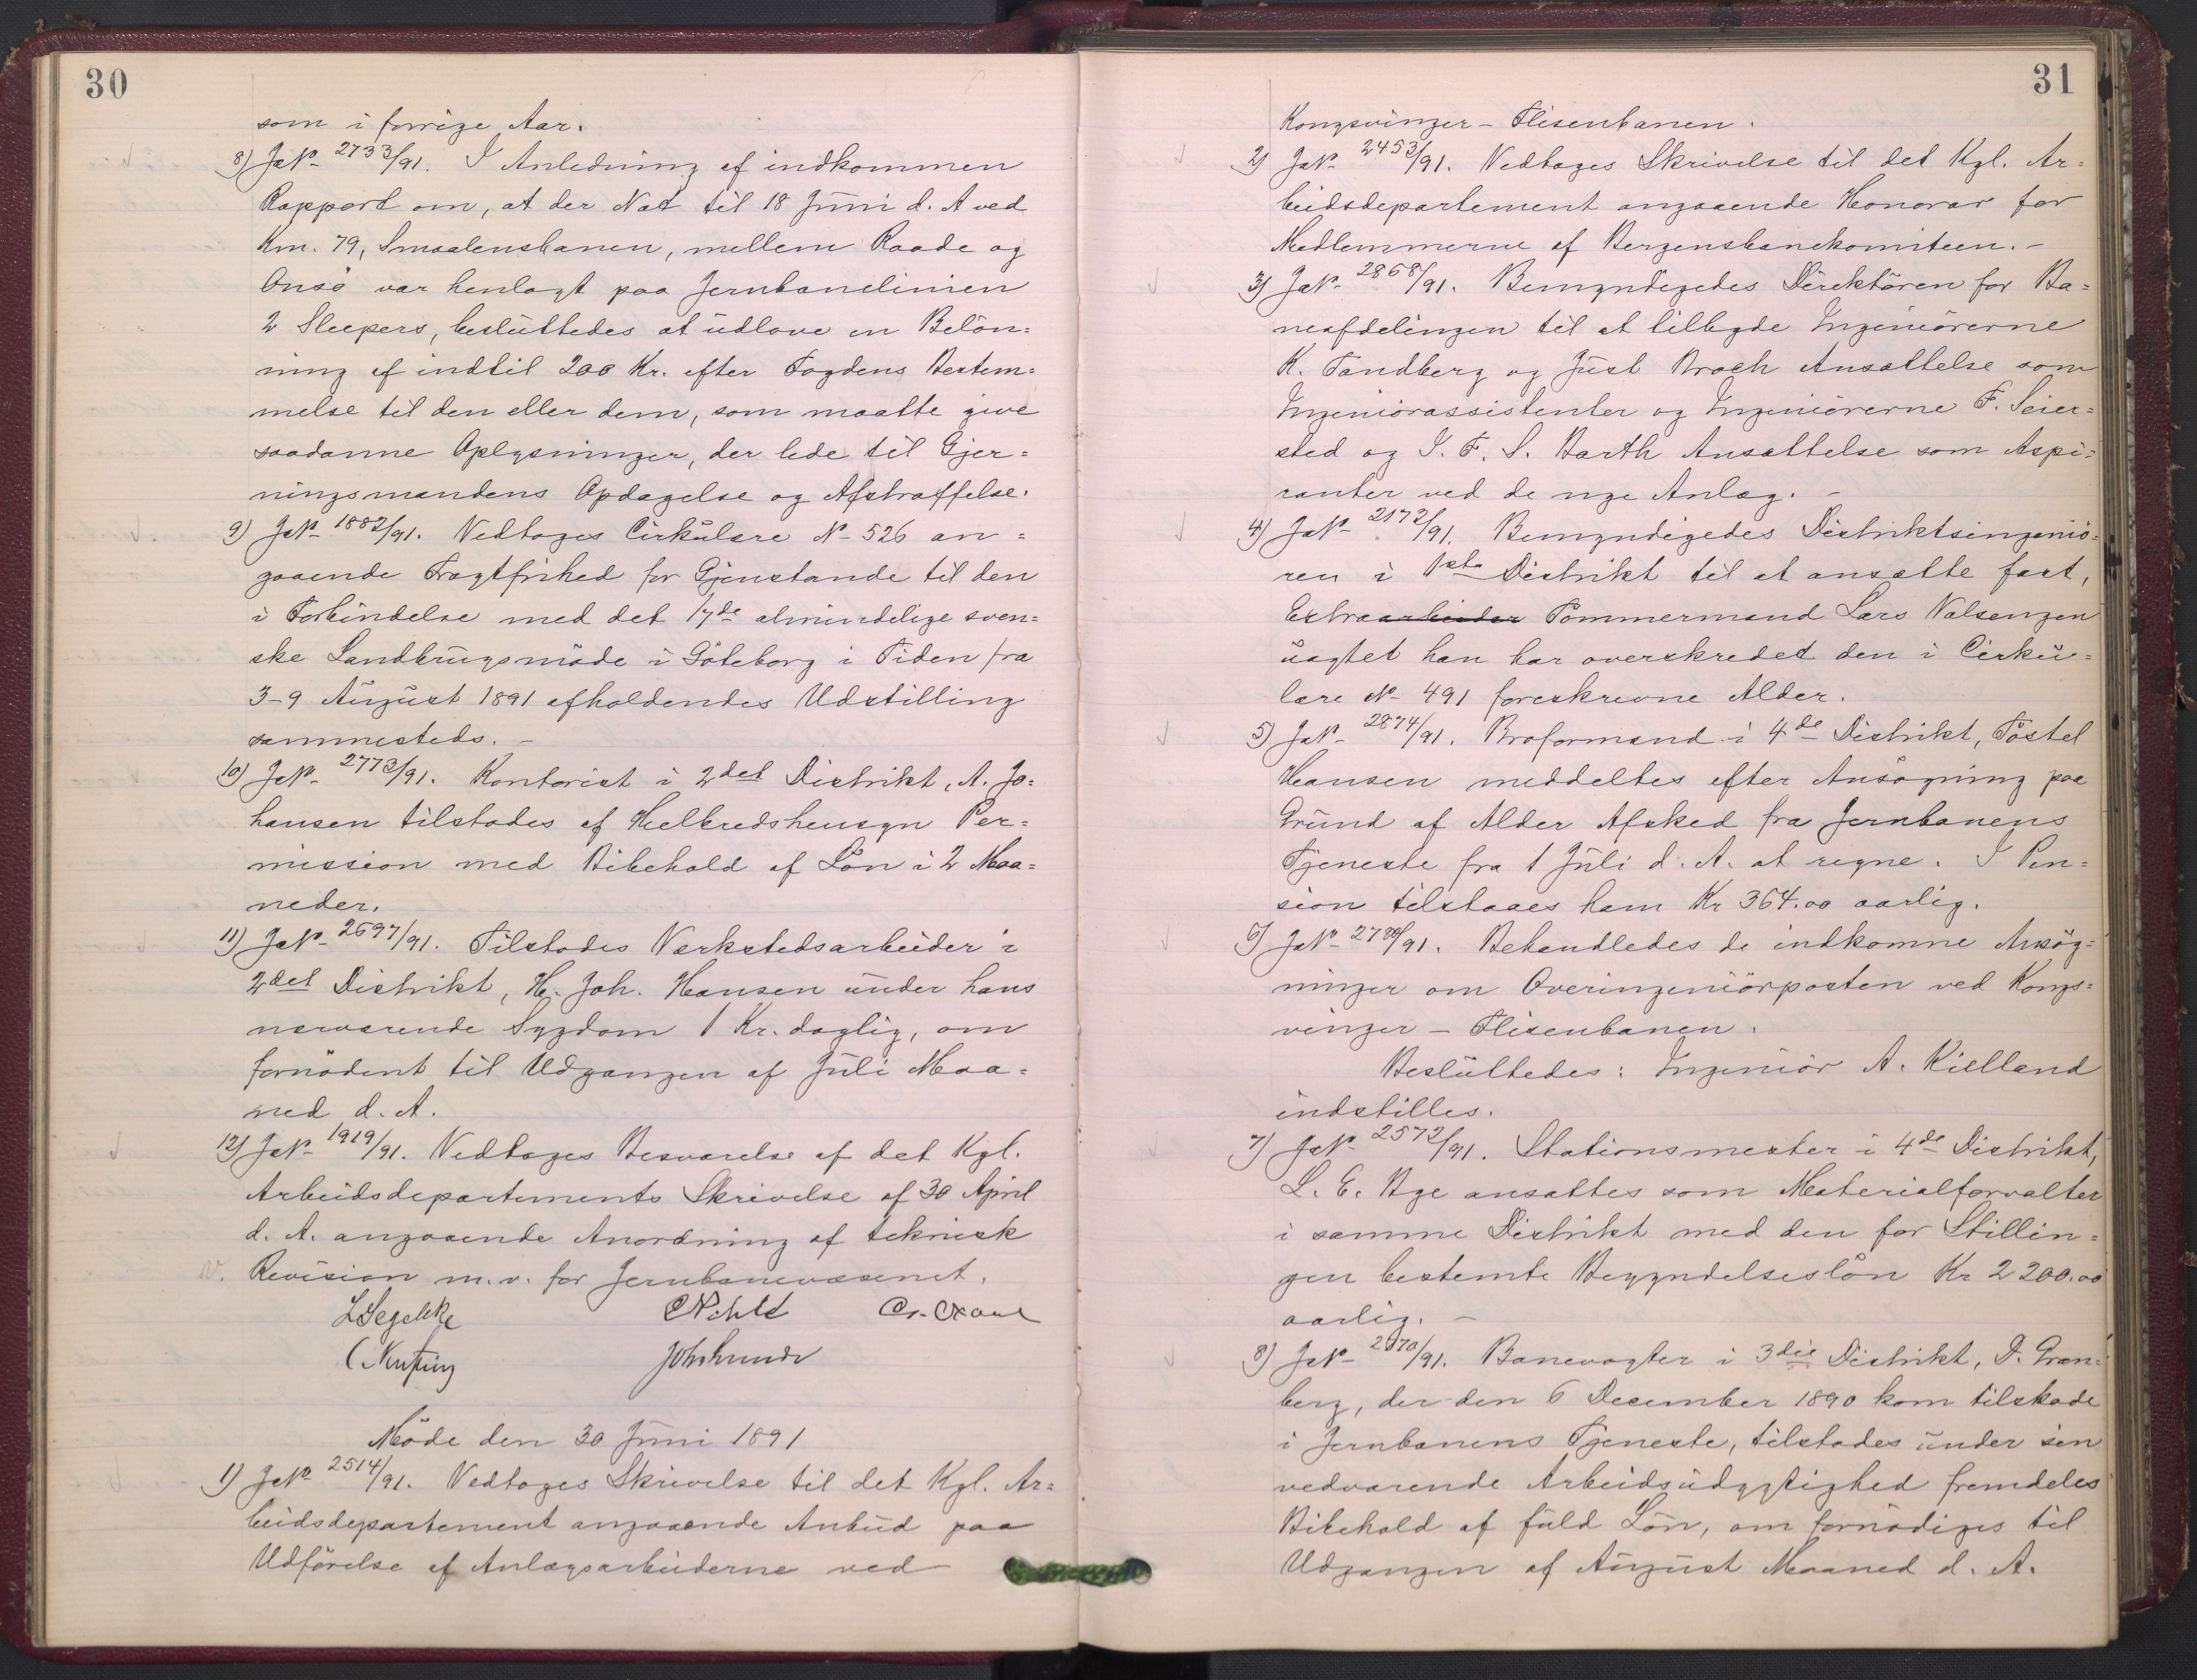 30
som i forrige Aar.
8) JN° 2733/91. I Anledning af indkommen
Rapport om, at der Nat til 18 Juni d. A ved
Km. 79, Smaalensbanen, mellem Raade og
Onsö var henlagt paa Jernbanelinien
2 Sleepers, besluttedes at udlove en Belön=
ning af indtil 200 Kr. efter Fogdens Bestem=
melse til den eller dem, som maatte give
saadanne Oplysninger, der lede til Gjer=
ningsmandens Opdagelse og Afstraffelse.
9) JN° 1882/91. Vedtoges Cirkulære N° 526 an=
gaaende Fragtfrihed for Gjenstande til den
i Forbindelse med det 17de almindelige sven=
ske Landbrugsmöde i Göteborg i Tiden fra
3-9 August 1891 afholdendes Udstilling
sammesteds. -
10) JN° 2773/91. Kontorist i 2det Distrikt, A. Jo=
hansen tilstodes af Helbredshensyn Per=
mission med Bibehold af Lön i 2 Maa=
neder.
11) JN° 2697/91. Tilstodes Værkstedsarbeider i
2det Distrikt, H. Joh. Hansen under hans
nærværende Sygdom 1 Kr. daglig, om
fornödent til Udgangen af Juli Maa=
ned d. A.
12) JN° 1919/91. Vedtoges Besvarelse af det Kgl.
Arbeidsdepartements Skrivelse af 30 April
d. A. angaaende Anordning af teknisk
v. Revision m. v. for Jernbanevæsenet.
LSegelcke
Möde den 30 Juni 1891
1) JN° 2514/91. Vedtoges Skrivelse til det Kgl. Ar=
beidsdepartement angaaende Anbud paa
Udförelse af Anlægsarbeiderne ved
31
Kongsvinger - Flisenbanen.
2) JN° 2453/91. Vedtoges Skrivelse til det Kgl. Ar=
beidsdepartement angaaende Honorar for
Medlemmerne af Bergensbanekomiteen. -
3) JN° 2868/91. Bemyndigedes Direktören for Ba=
neafdelingen til at tilbyde Ingeniörerne
K. Tandberg og Just Broch Ansættelse som
Ingeniörassistenter og Ingeniörerne F. Seier=
sted og I. F. S. Barth Ansættelse som Aspi=
ranter ved de nye Anlæg. -
4) JN° 2172/91. Bemyndigedes Distriktsingeniö=
ren i 1ste Distrikt til at ansætte fast,
Extraarbeider Tömmermand Lars Valsengen
uagtet han har overskredet den i Cirku=
lære N° 491 foreskrevne Alder.
5) JN° 2874/91. Broformand i 4de Distrikt, Töstel
Hansen meddeltes efter Ansögning paa
Grund af Alder Afsked fra Jernbanens
Tjeneste fra 1 Juli d. A. at regne. I Pen=
sion tilstaaes ham Kr 364.00 aarlig.
6) JN° 2780/91. Behandledes de indkomne Ansög=
ninger om Overingeniörposten ved Kongs=
vinger - Flisenbanen.
Besluttedes: Ingeniör A. Kielland
indstilles.
7) JN° 2572/91. Stationsmester i 4de Distrikt,
L. E. Bye ansattes som Materialforvalter
i samme Distrikt med den for Stillin=
gen bestemte Begyndelseslön Kr 2200.00
aarlig. -
8) JN° 2970/91. Banevogter i 3die Distrikt, D. Gran=
berg, der den 6 December 1890 kom tilskade
i Jernbanens Tjeneste, tilstodes under sin
vedvarende Arbeidsudygtighed fremdeles
Bibehold af fuld Lön, om fornödiges til
Udgangen af August Maaned d. A.